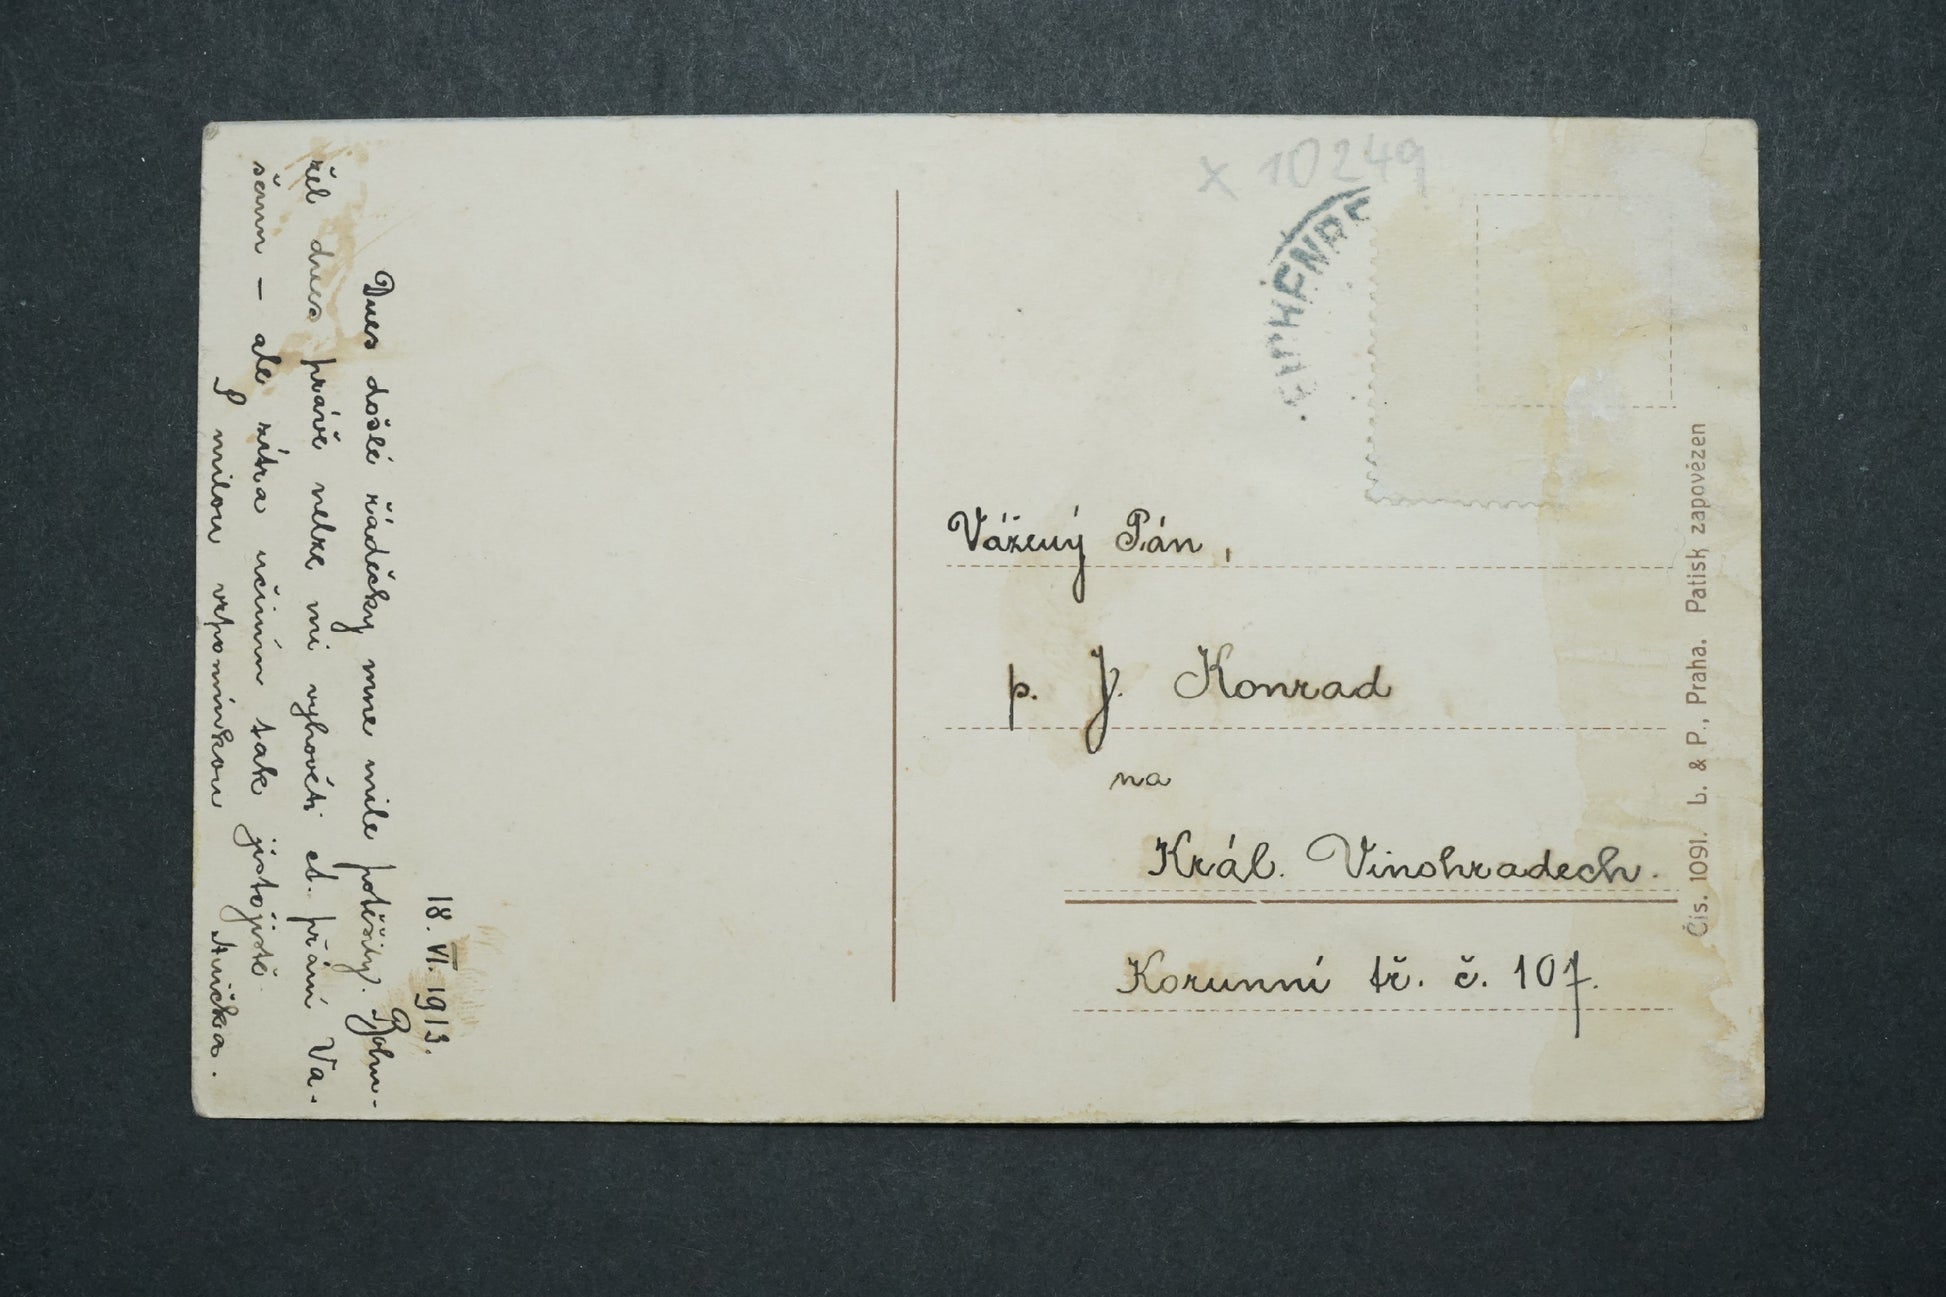 18. VI. 1913.
Dnes došlé řádečky mne mile potěšily. Bohu-
žel dnes právě nelze mi vyhověti ct. přání Va-
šemu – ale zítra učiním tak jistojistě.
S milou vzpomínkou Anička.
x 10249
Vážený Pán,
p. J. Konrad
na
Král. Vinohradech.
Korunní tř. č. 107.
Čís. 1091. L. & P., Praha. Patisk zapovězen